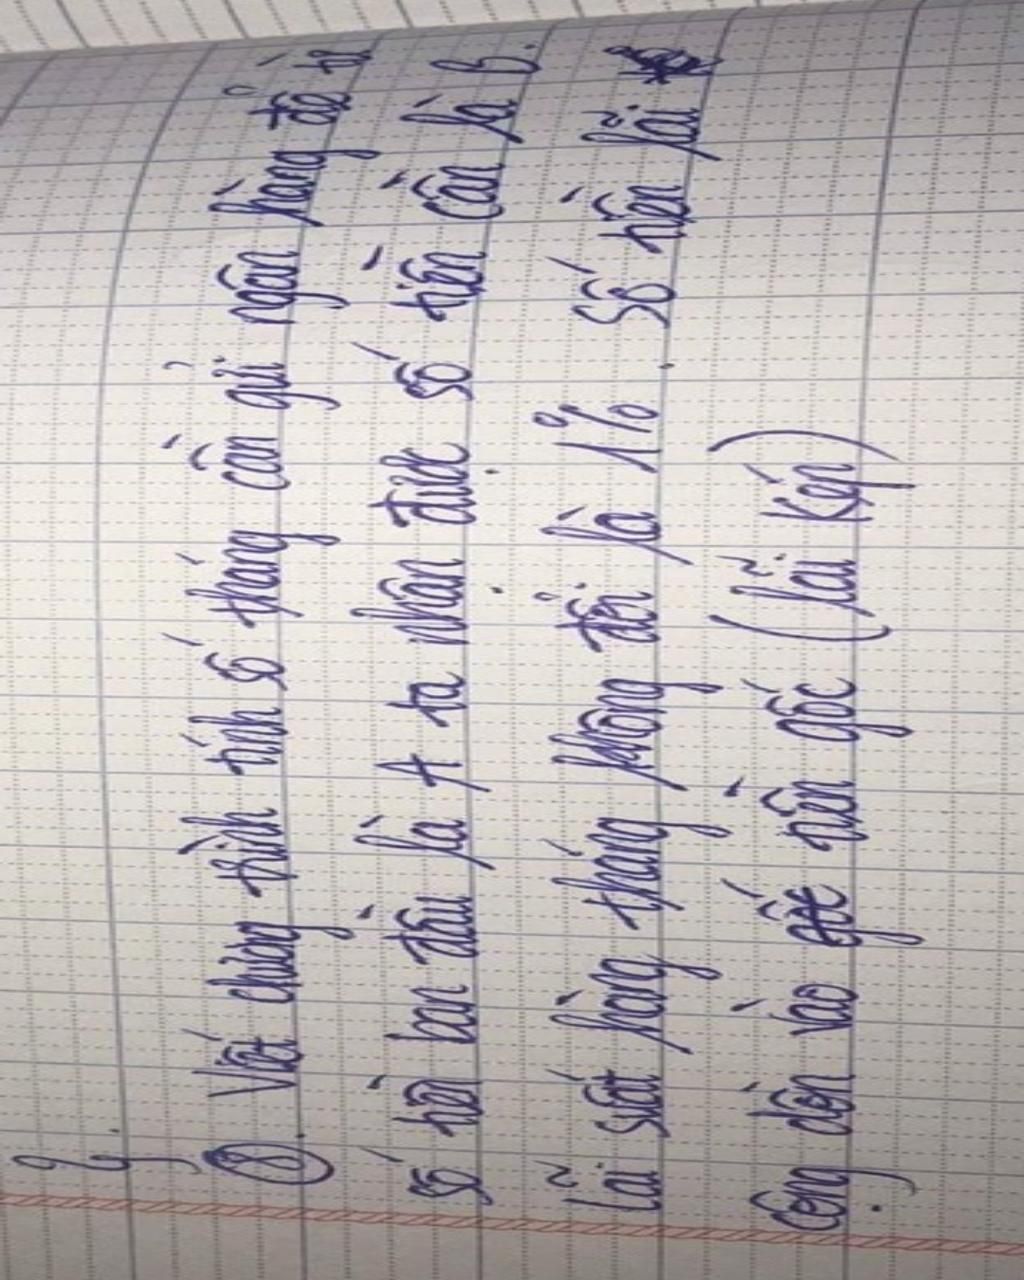 }
}.
⑧. Viết chương trình tính số tháng cần gửi ngân hàng để từ
số tiền ban đầu là A ta nhận được số tiền cần là B.
Lãi suất hàng tháng không đổi là 1%. Số tiền lãi
cộng dồn vào tiền gốc (lãi kép)